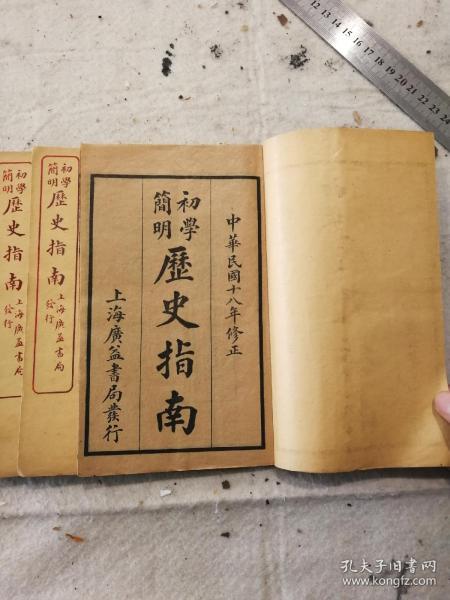 中華民國十八年修正
初學
簡明
歷史指南
上海廣益書局發行
初學
簡明
歷史指南
上海廣益書局
發行
初學
簡明
歷史指南
上海廣益書局
發行
15 16 17 18 19 20 21 22 23 24
孔夫子旧书网
www.kongfz.com